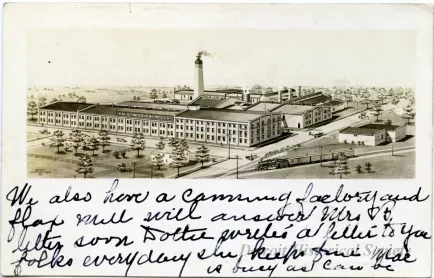 We also have a canning factory and
flax mill will answer Mrs H,
letter soon Dottie writes a letter to you
folks every day she keeps fine Mae
is busy as can be
Detroit Historical Society